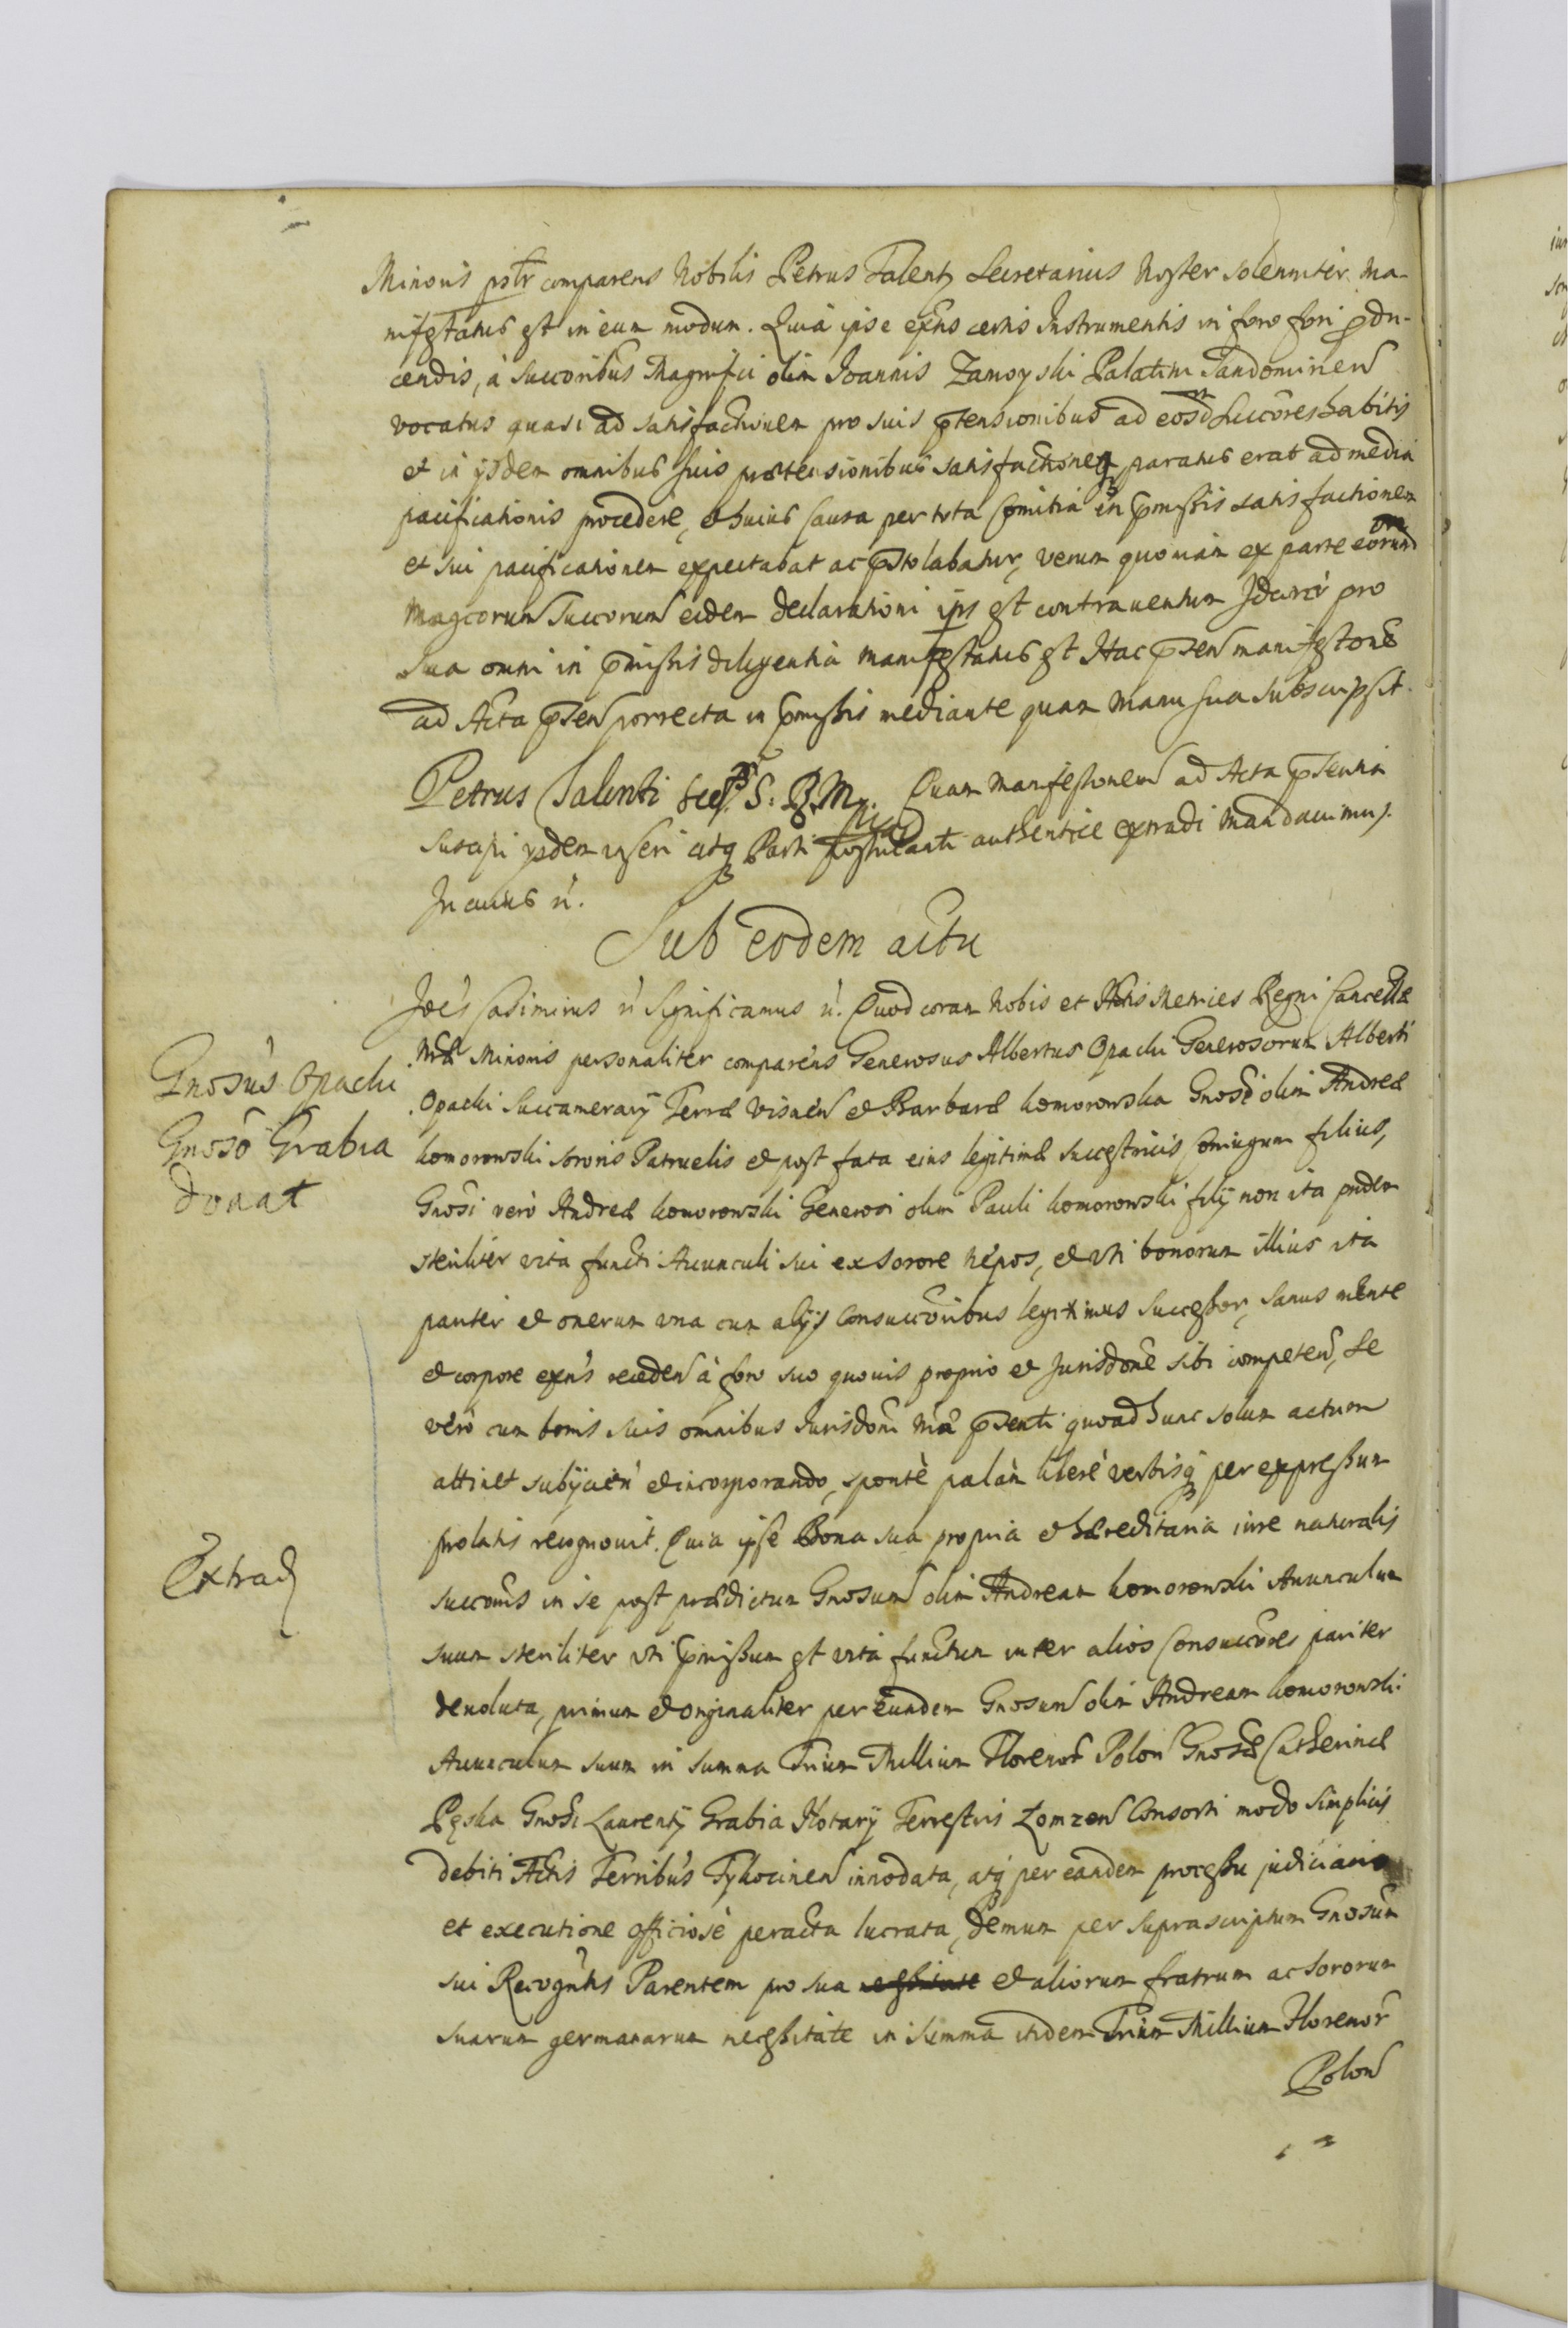 Minoris pstr comparens Nobilis Petrus Talenty Secretarius Noster solenniter Ma-
nifestatus est in eum modum. Quia ipse exns certis Instrumentis in foro fori produ-
cendis, à Succoribus Magnifici olim Joannis Zamoyski Palatini Sandomirien
vocatus quasi ad satisfactionem pro suis ptensionibus ad eosd Succores habitis
et in ijsdem omnibus suis prætensionibus satisfactionemq paratus erat ad media
pacificationis procedere, et huius Causa per tota Comitia in pmissis satisfactionem
et sui pacificationem expectabat ac pstolabatur, verum quoniam ex parte eorund
Magcorum Succorum eidem declarationi ips est contraventum Idcirco pro
sua omni in pmissis diligentia manifestatus est Hac psen manifestone
ad Acta psen porrecta in pmissis mediante quam manu sua subscripsit.
Petrus Talenti Secr. S. R. M. Quam Manifestonem ad Acta psentia
suscipi ijsdem inseri atq Parti postulanti authentice extradi mandavimus.
In cuius rei.
Sub eodem actu
Joes Casimirus rt Significamus rt. Quod coram Nobis et Actis Metrices Regni Cancellæ
Nræ Minoris personaliter comparens Generosus Albertus Opacki Generosorum Alberti
Opacki Succamerarij Terræ Visnen et Barbaræ Komorowska Gnosi olim Andreæ
Komorowski sororis Patruelis et post fata eius legitimæ successtricis Coniugum filius,
Gnosi vero Andreæ Komorowski Generosi olim Pauli Komorowski filij non ita pridem
steriliter vita functi Avunculi sui ex Sorore Nepos, et uti bonorum illius ita
pariter et onerum una cum alijs Consuccoribus legitimus Successor, sanus mente
et corpore exns receden à foro suo quovis proprio et Jurisdone sibi competen, Se
vero cum bonis suis omnibus Jurisdoni Nræ psenti quoad hunc solum actum
attinet subijcien et incorporando, sponte palam libere verbisq per expressum
prolatis recognovit. Quia ipse Bona sua propria et hæreditaria iure naturalis
succonis in se post prædictum Gnosum olim Andream Komorowski Avunculum
suum steriliter uti pmissum est vita functum inter alios Consuccores pariter
devoluta, primum et originaliter per eundem Gnosum olim Andream Komorowski
Avunculum suum in summa Trium Millium Florenor Polon Gnosæ Catherinæ
Pęska Gnosi Laurentij Grabia Notarij Terrestris Lomzen Consorti modo simplicis
debiti Actis Terribus Tykocinen innodata, atq per eandem processu judiciario
et executione officiose peracta lucrata, Demum per suprascriptum Gnosum
sui Recogntis Parentem pro sua necessitate et aliorum fratrum ac sororum
suarum germanarum necessitate in Summa itidem Trium Millium Florenor
Polon
Gnosus Opacki
Gnoso Grabia
donat
Extrad